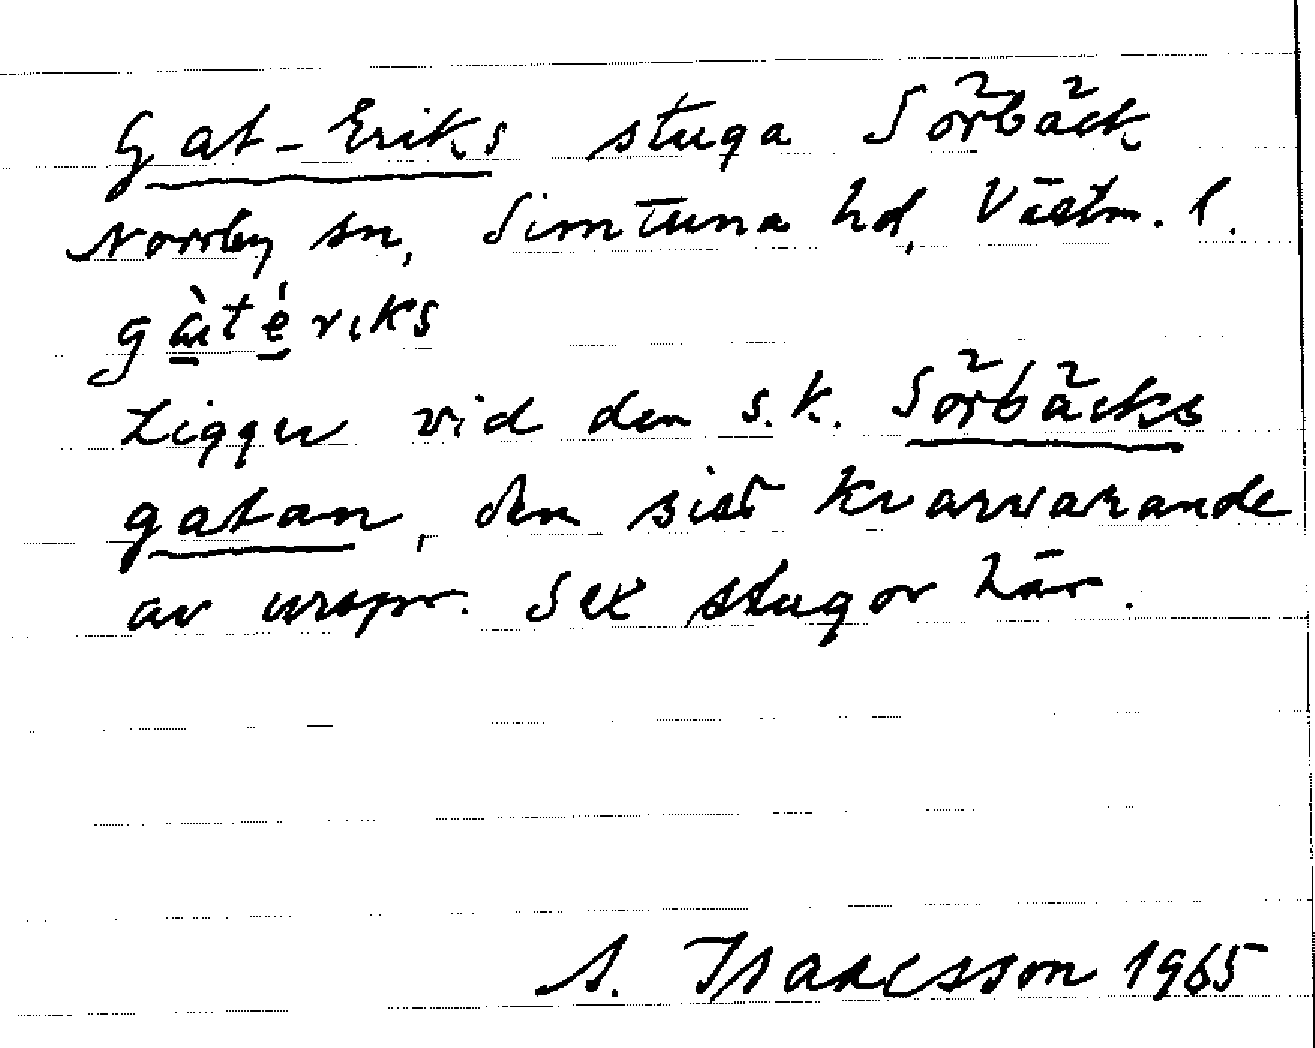 Gat-Eriks stuga Sörbäck
Norrby sn, Simtuna hd, Västm. l.
gàtériks
Ligger vid den s.k. Sörbäcks
gatan, den sist kvarvarande
av urspr. sex stugor här.
A. Isaacsson 1965